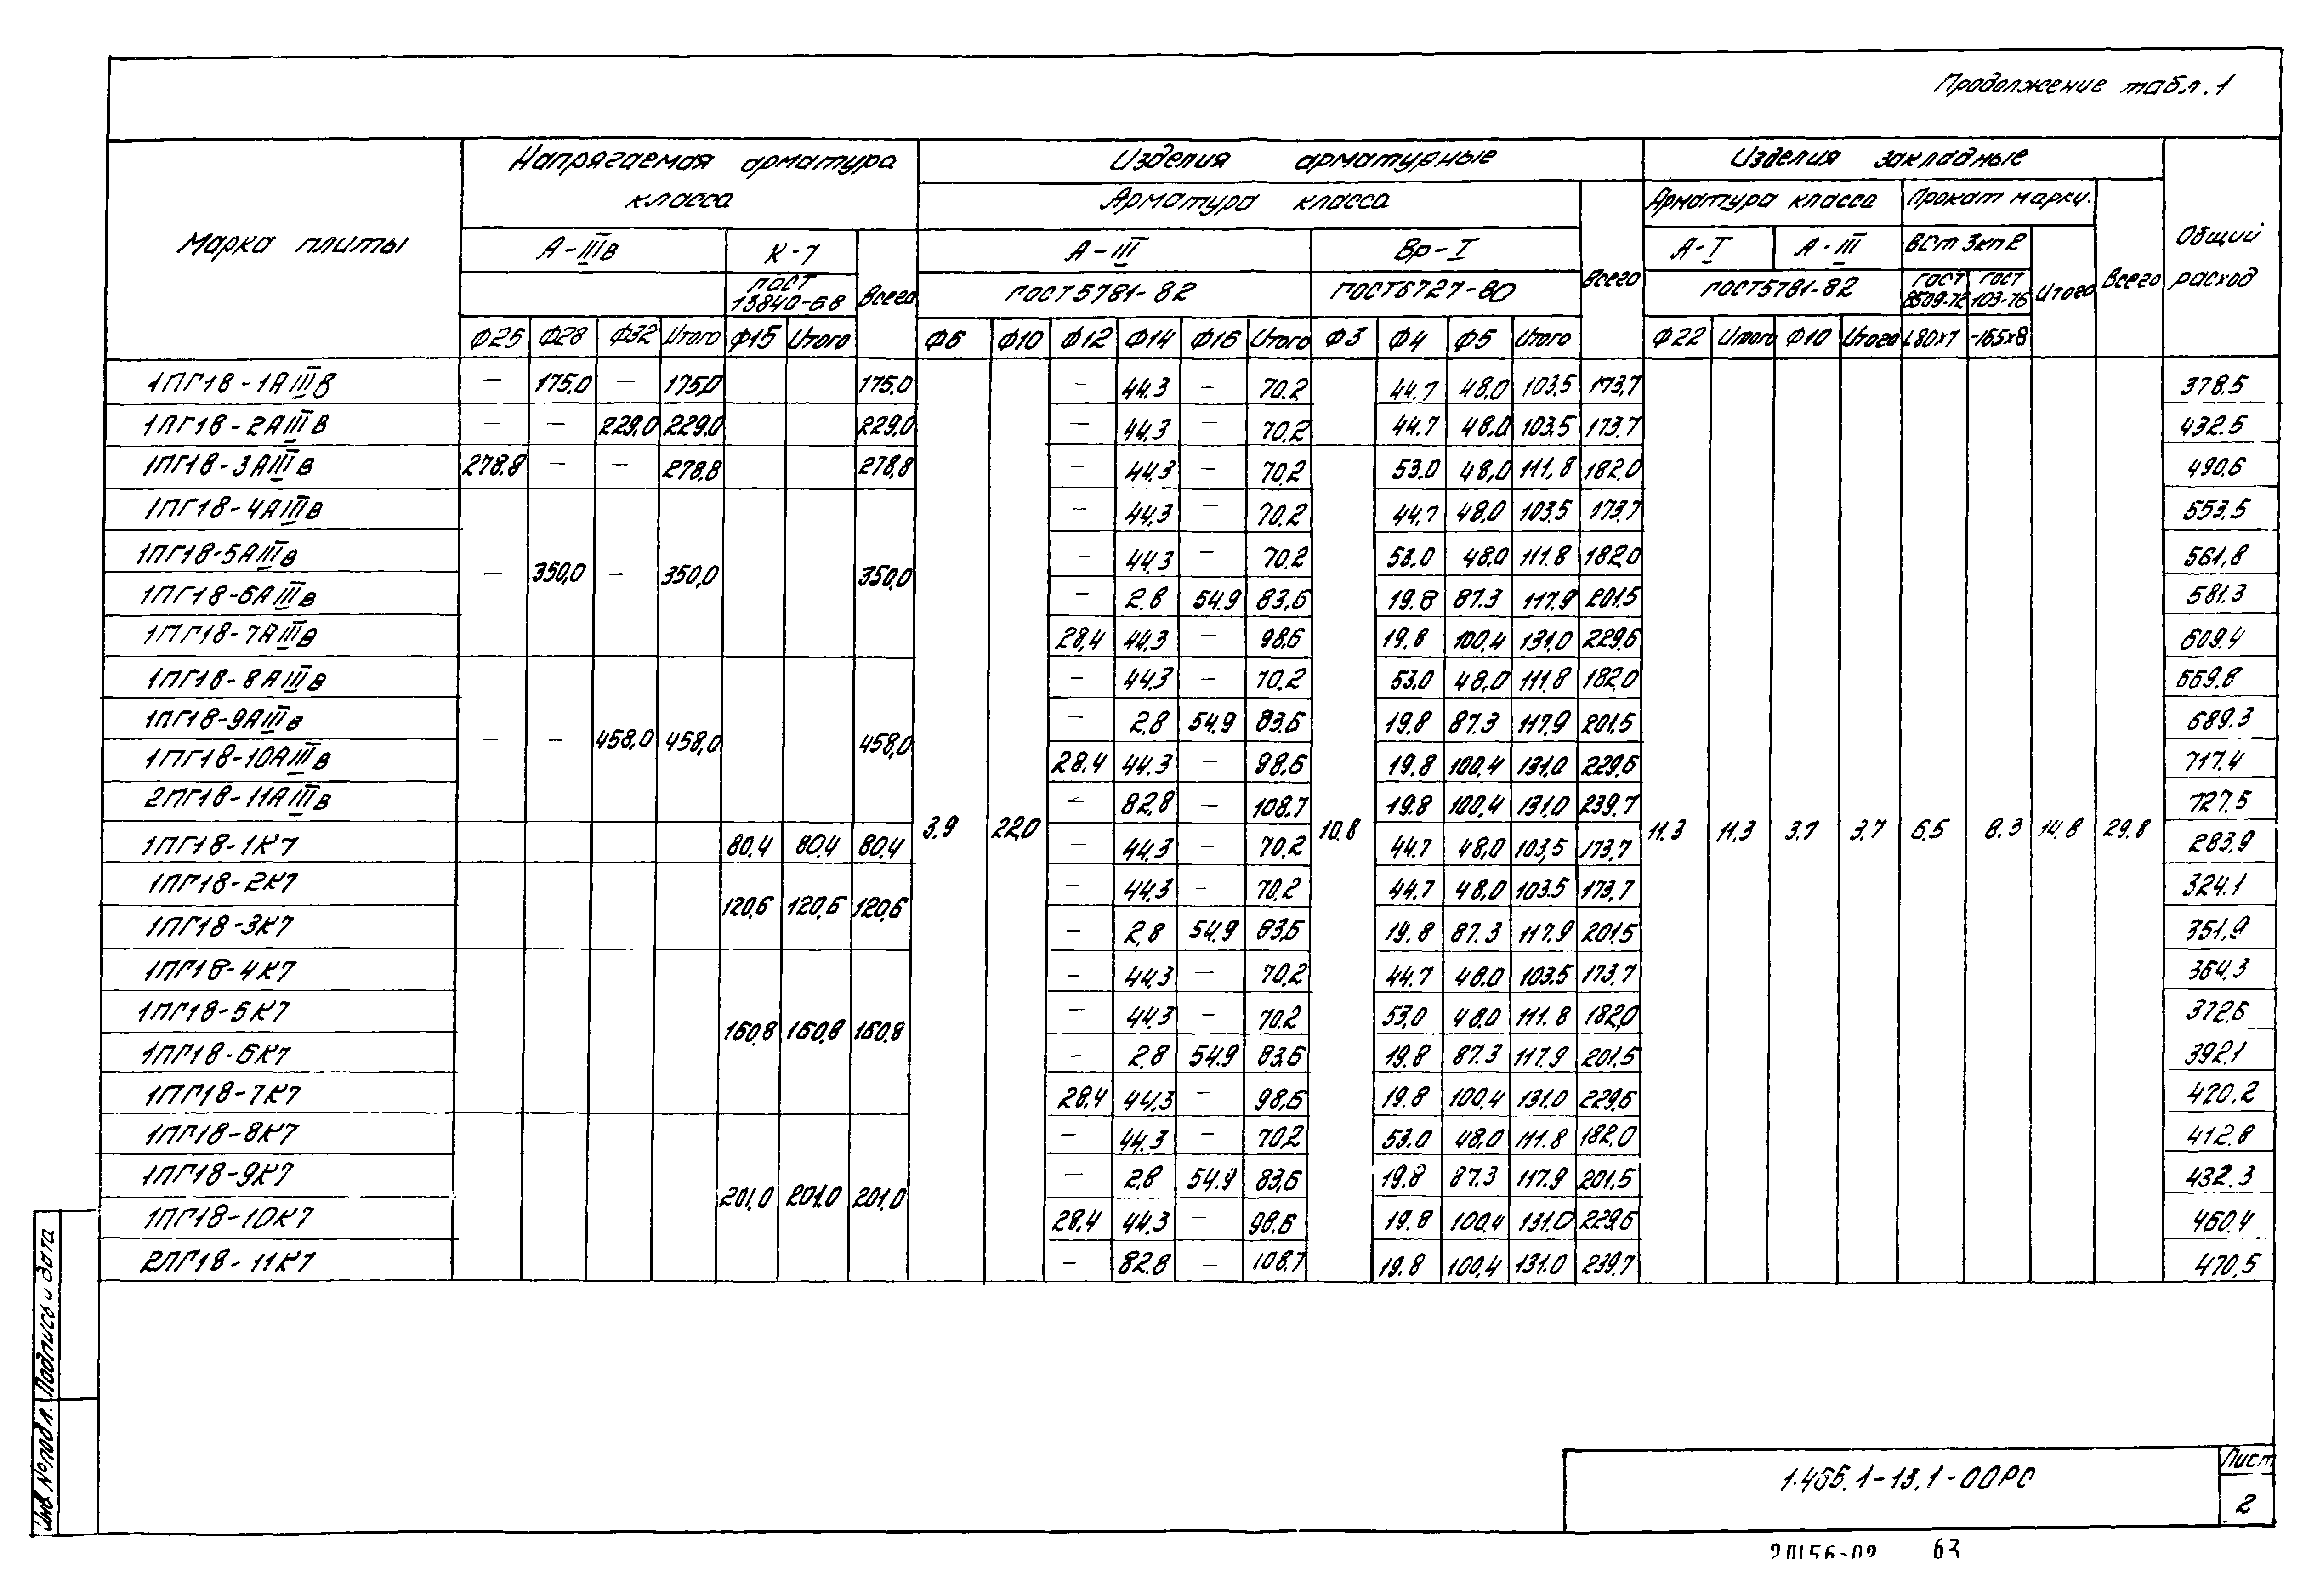 Продолжение табл. 1
Марка плиты | Напрягаемая арматура класса | Изделия арматурные | Изделия закладные | Общий расход
Арматура класса | Всего | Арматура класса | Прокат марки | Всего
А-IIIв | К-7 | Всего | А-III | Вр-I | А-I | А-III | ВСт 3кп2 | Итого
ГОСТ 13840-68 | ГОСТ 5781-82 | ГОСТ 6727-80 | ГОСТ 5781-82 | ГОСТ 8509-72 | ГОСТ 103-76
Ф25 | Ф28 | Ф32 | Итого | Ф15 | Итого | Ф6 | Ф10 | Ф12 | Ф14 | Ф16 | Итого | Ф3 | Ф4 | Ф5 | Итого | Ф22 | Итого | Ф10 | Итого | L80×7 | -165×8
1ПГ18-1АIIIв | – | 175.0 | – | 175.0 | 175.0 | – | 44.3 | – | 70.2 | 44.7 | 48.0 | 103.5 | 173.7 | 378.5
1ПГ18-2АIIIв | – | – | 229.0 | 229.0 | 229.0 | – | 44.3 | – | 70.2 | 44.7 | 48.0 | 103.5 | 173.7 | 432.5
1ПГ18-3АIIIв | 278.8 | – | – | 278.8 | 278.8 | – | 44.3 | – | 70.2 | 53.0 | 48.0 | 111.8 | 182.0 | 490.6
1ПГ18-4АIIIв | – | 44.3 | – | 70.2 | 44.7 | 48.0 | 103.5 | 173.7 | 553.5
1ПГ18-5АIIIв | – | 350.0 | – | 350.0 | 350.0 | – | 44.3 | – | 70.2 | 53.0 | 48.0 | 111.8 | 182.0 | 561.8
1ПГ18-6АIIIв | – | 2.8 | 54.9 | 83.6 | 19.8 | 87.3 | 117.9 | 201.5 | 581.3
1ПГ18-7АIIIв | 28.4 | 44.3 | – | 98.6 | 19.8 | 100.4 | 131.0 | 229.6 | 609.4
1ПГ18-8АIIIв | – | 44.3 | – | 70.2 | 53.0 | 48.0 | 111.8 | 182.0 | 669.8
1ПГ18-9АIIIв | – | – | 458.0 | 458.0 | 458.0 | – | 2.8 | 54.9 | 83.6 | 19.8 | 87.3 | 117.9 | 201.5 | 689.3
1ПГ18-10АIIIв | 28.4 | 44.3 | – | 98.6 | 19.8 | 100.4 | 131.0 | 229.6 | 717.4
2ПГ18-11АIIIв | – | 82.8 | – | 108.7 | 19.8 | 100.4 | 131.0 | 239.7 | 727.5
3.9 | 22.0 | 10.8 | 11.3 | 11.3 | 3.7 | 3.7 | 6.5 | 8.3 | 14.8 | 29.8
1ПГ18-1К7 | 80.4 | 80.4 | 80.4 | – | 44.3 | – | 70.2 | 44.7 | 48.0 | 103.5 | 173.7 | 283.9
1ПГ18-2К7 | 120.6 | 120.6 | 120.6 | – | 44.3 | – | 70.2 | 44.7 | 48.0 | 103.5 | 173.7 | 324.1
1ПГ18-3К7 | – | 2.8 | 54.9 | 83.6 | 19.8 | 87.3 | 117.9 | 201.5 | 351.9
1ПГ18-4К7 | – | 44.3 | – | 70.2 | 44.7 | 48.0 | 103.5 | 173.7 | 364.3
1ПГ18-5К7 | 160.8 | 160.8 | 160.8 | – | 44.3 | – | 70.2 | 53.0 | 48.0 | 111.8 | 182.0 | 372.6
1ПГ18-6К7 | – | 2.8 | 54.9 | 83.6 | 19.8 | 87.3 | 117.9 | 201.5 | 392.1
1ПГ18-7К7 | 28.4 | 44.3 | – | 98.6 | 19.8 | 100.4 | 131.0 | 229.6 | 420.2
1ПГ18-8К7 | – | 44.3 | – | 70.2 | 53.0 | 48.0 | 111.8 | 182.0 | 412.8
1ПГ18-9К7 | 201.0 | 201.0 | 201.0 | – | 2.8 | 54.9 | 83.6 | 19.8 | 87.3 | 117.9 | 201.5 | 432.3
1ПГ18-10К7 | 28.4 | 44.3 | – | 98.6 | 19.8 | 100.4 | 131.0 | 229.6 | 460.4
2ПГ18-11К7 | – | 82.8 | – | 108.7 | 19.8 | 100.4 | 131.0 | 239.7 | 470.5
Инв № подл. Подпись и дата
1.465.1-13.1-00РС
Лист
2
20156-02 63